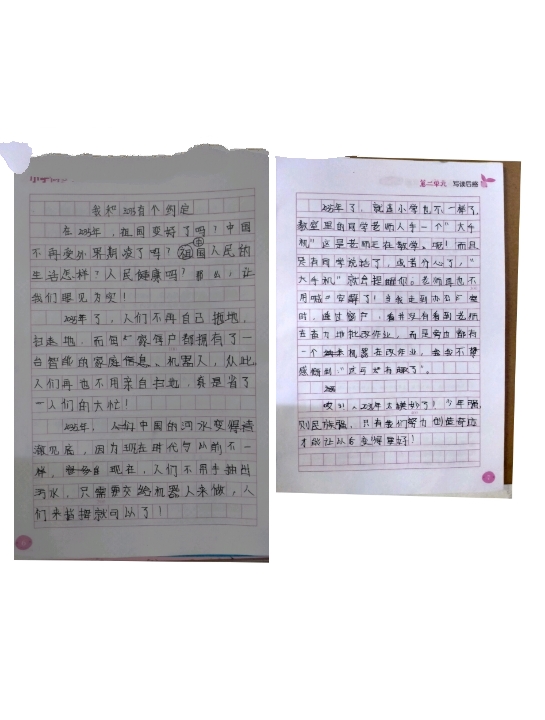 我和235有个约定
在235年，祖国变好了吗？中国
不再受外界欺凌了吗？祖国人民的
生活怎样？人民健康吗？那么，让
我们眼见为实！
235年了，人们不再自己拖地，
扫走地，而每家每户都拥有了一
台智能的机器人，从此
人们再也不用亲自扫地，真是省了
一人们的大忙！
235年，中国的河水变得清
澈见底，因为现在时代与从前不一
样。现在，人们不用手抽出
污水，只需要交给机器人来做，人
们来指挥就可以了！
第二单元 写读后感
235年了，就连小学也不一样了，
教室里的同学老师人手一个“大手
机”这是老师正在教学。呃！而且
只有同学说话了，或者分心了，“
大手机”就会提醒你。老师再也不
用喊“安静了！当我走到办公室
时，透过窗户，看并没有看到老师
在奋力地批改作业，而是旁边都有
一个机器在改作业，我不禁
感慨到：“这可太有趣了”。
哎，235年太美妙了！少年强，
则民族强，只有我们努力创造奇迹
才能让从有变得更好！